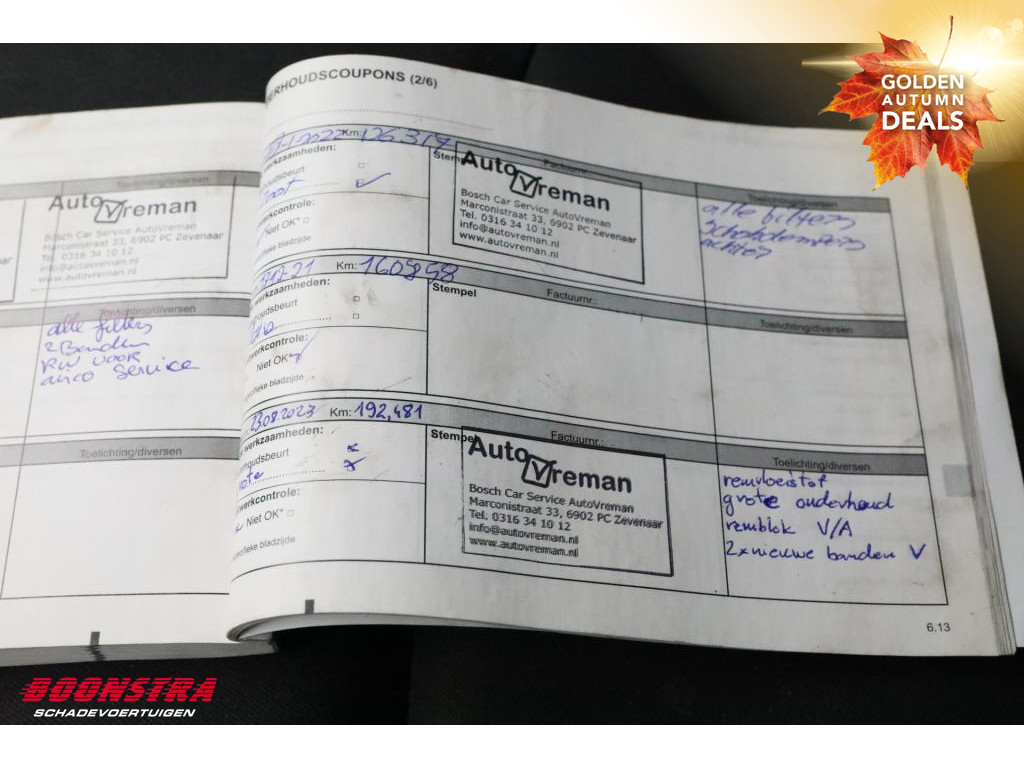 GOLDEN
AUTUMN
DEALS
ERHOUDSCOUPONS (2/6)
Toelichting/diversen
AutoVreman
Bosch Car Service AutoVreman
Marconistraat 33, 6902 PC Zevenaar
Tel. 0316 34 10 12
info@autovreman.nl
www.autovreman.nl
Toelichting/diversen
alle filters
2 Banden
RW voor
airco service
Toelichting/diversen
Km: 126.317
werkzaamheden:
houdsbeurt
root
werkcontrole:
Niet OK*
fieke bladzijde
Stempel
Factuurnr.:
AutoVreman
Bosch Car Service AutoVreman
Marconistraat 33, 6902 PC Zevenaar
Tel. 0316 34 10 12
info@autovreman.nl
www.autovreman.nl
Toelichting/diversen
alle filters
Schokdempers
achter
12-21 Km: 160898
werkzaamheden:
houdsbeurt
werkcontrole:
Niet OK*
ifieke bladzijde
Stempel
Factuurnr.:
Toelichting/diversen
23.08.2023 Km: 192,481
werkzaamheden:
houdsbeurt
rote
werkcontrole:
Niet OK*
ecifieke bladzijde
Stempel
Factuurnr.:
AutoVreman
Bosch Car Service AutoVreman
Marconistraat 33, 6902 PC Zevenaar
Tel. 0316 34 10 12
info@autovreman.nl
www.autovreman.nl
Toelichting/diversen
remvloeistof
grote onderhoud
remblok V/A
2x nieuwe banden V
6.13
BOONSTRA
SCHADEVOERTUIGEN